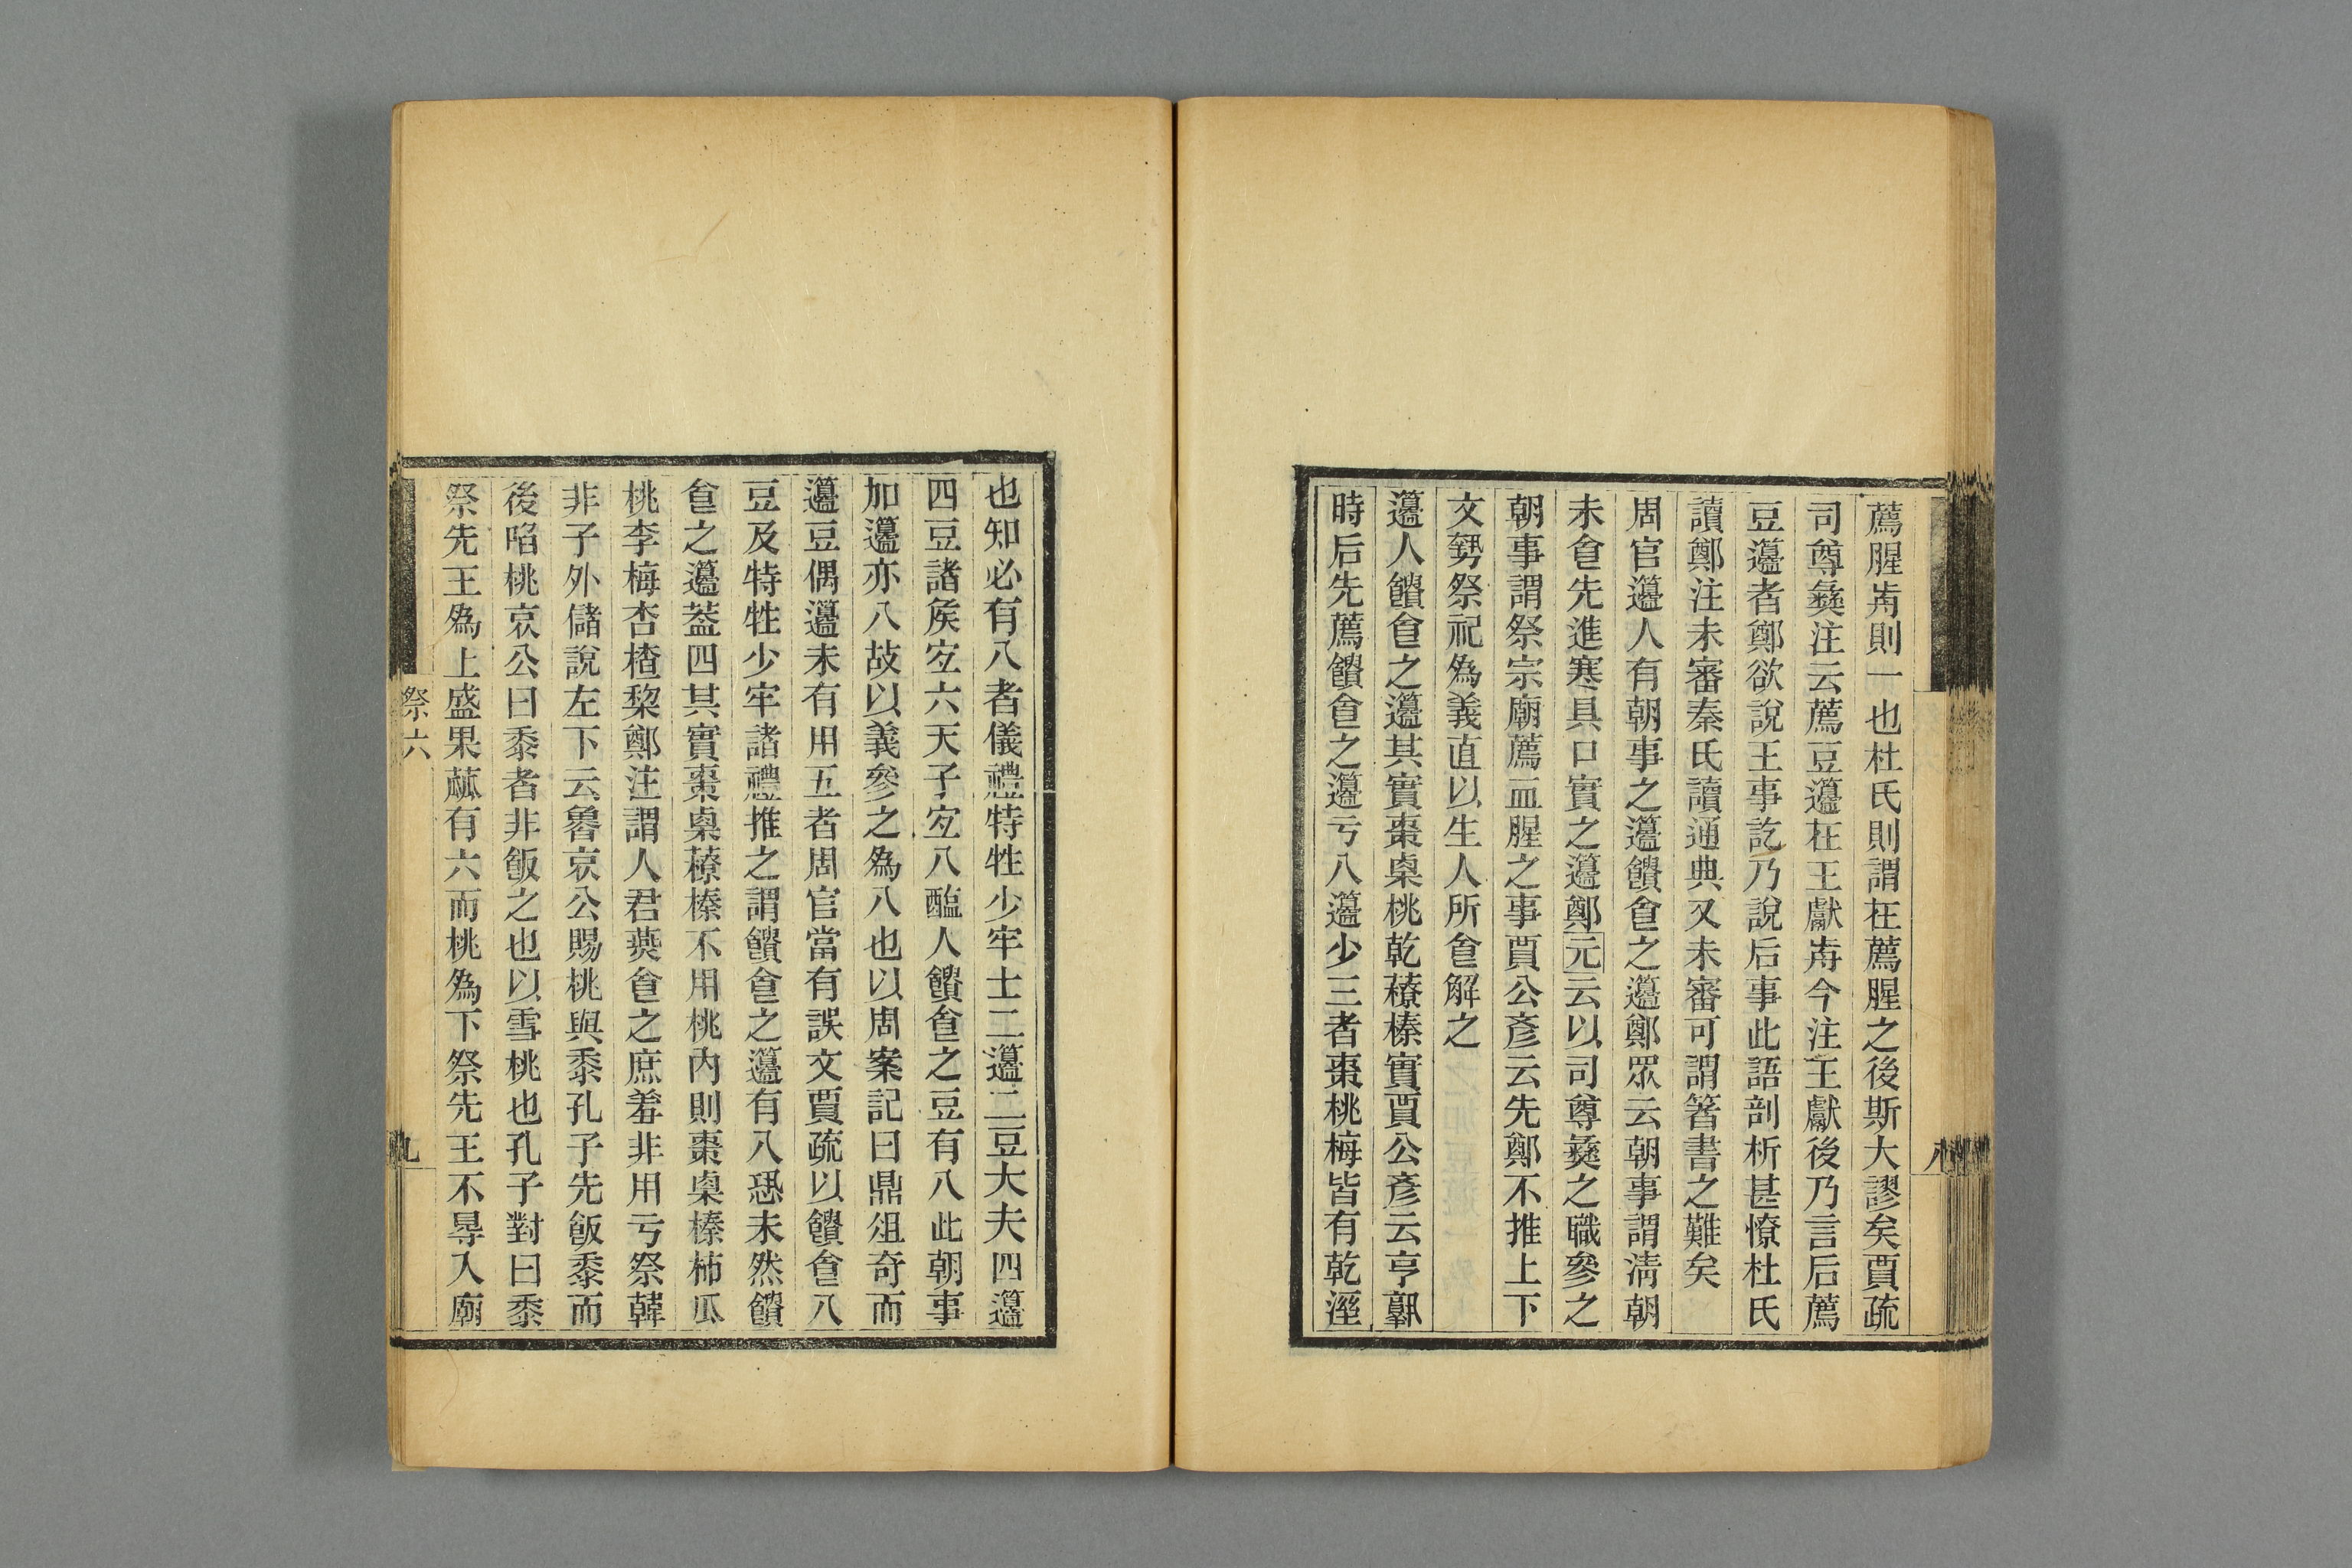 薦腥歬則一也杜氏則謂在薦腥之後斯大謬矣賈疏
司尊彝注云薦豆籩在王獻歬今注王獻後乃言后薦
豆籩者鄭欲說王事訖乃說后事此語剖析甚憭杜氏
讀鄭注未審秦氏讀通典又未審可謂箸書之難矣
周官籩人有朝事之籩饋𠊊之籩鄭眾云朝事謂淸朝
未𠊊先進寒具口實之籩鄭元云以司尊彝之職參之
朝事謂祭宗廟薦血腥之事賈公彥云先鄭不推上下
文埶祭祀爲義直以生人所𠊊解之
籩人饋𠊊之籩其實棗㮚桃乾䕩榛實賈公彥云亨孰
時后先薦饋𠊊之籩亏八籩少三者棗桃梅皆有乾溼
八
也知必有八者儀禮特牲少牢士二籩二豆大夫四籩
四豆諸矦宐六天子宐八醢人饋𠊊之豆有八此朝事
加籩亦八故以義參之爲八也以周案記曰鼎俎奇而
籩豆偶籩未有用五者周官當有誤文賈疏以饋𠊊八
豆及特牲少牢諸禮推之謂饋𠊊之籩有八恐未然饋
𠊊之籩葢四其實棗㮚䕩榛不用桃內則棗㮚榛柿瓜
桃李梅杏楂棃鄭注謂人君燕𠊊之庶羞非用亏祭韓
非子外儲說左下云魯哀公賜桃與黍孔子先飯黍而
後啗桃哀公曰黍者非飯之也以雪桃也孔子對曰黍
祭先王爲上盛果蓏有六而桃爲下祭先王不㝵入廟
祭六
九